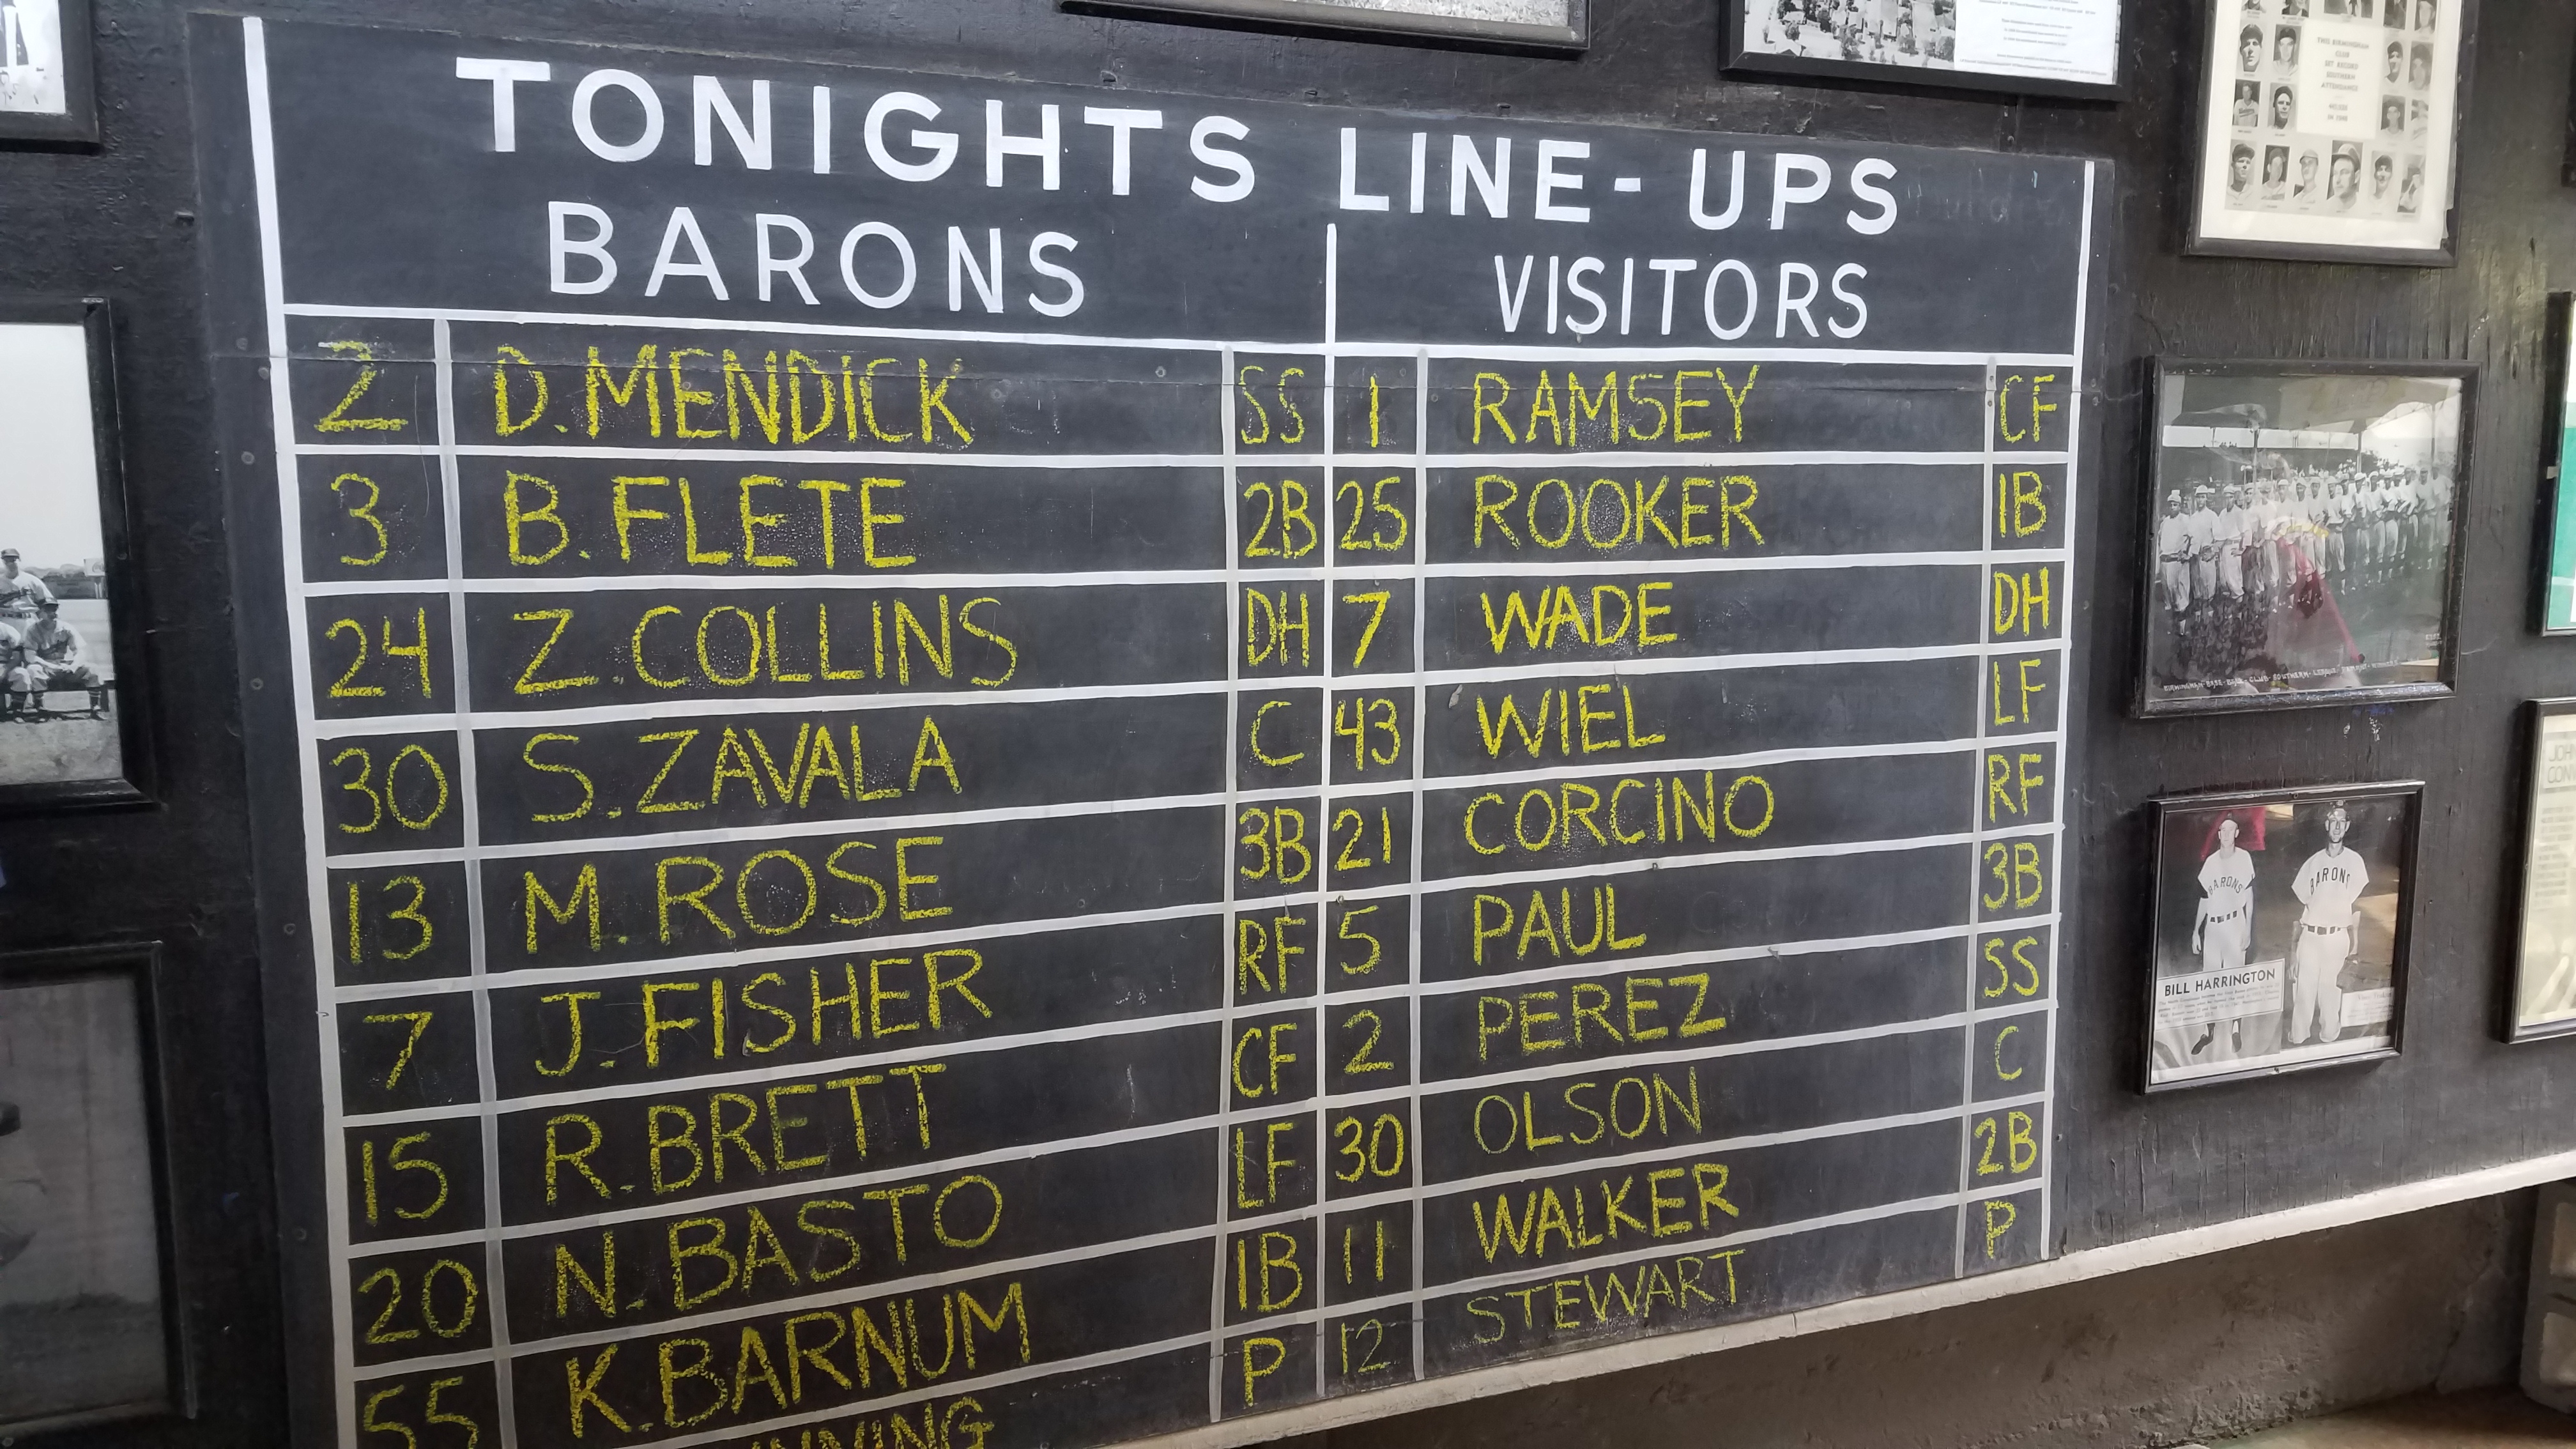 TONIGHTS LINE-UPS
BARONS VISITORS
2 D.MENDICK SS 1 RAMSEY CF
3 B.FLETE 2B 25 ROOKER 1B
24 Z.COLLINS DH 7 WADE DH
30 S.ZAVALA C 43 WIEL LF
13 M.ROSE 3B 21 CORCINO RF
7 J.FISHER RF 5 PAUL 3B
15 R.BRETT CF 2 PEREZ SS
20 N.BASTO LF 30 OLSON C
55 K.BARNUM 1B 11 WALKER 2B
P 12 STEWART P
BARONS
BARONS
BILL HARRINGTON